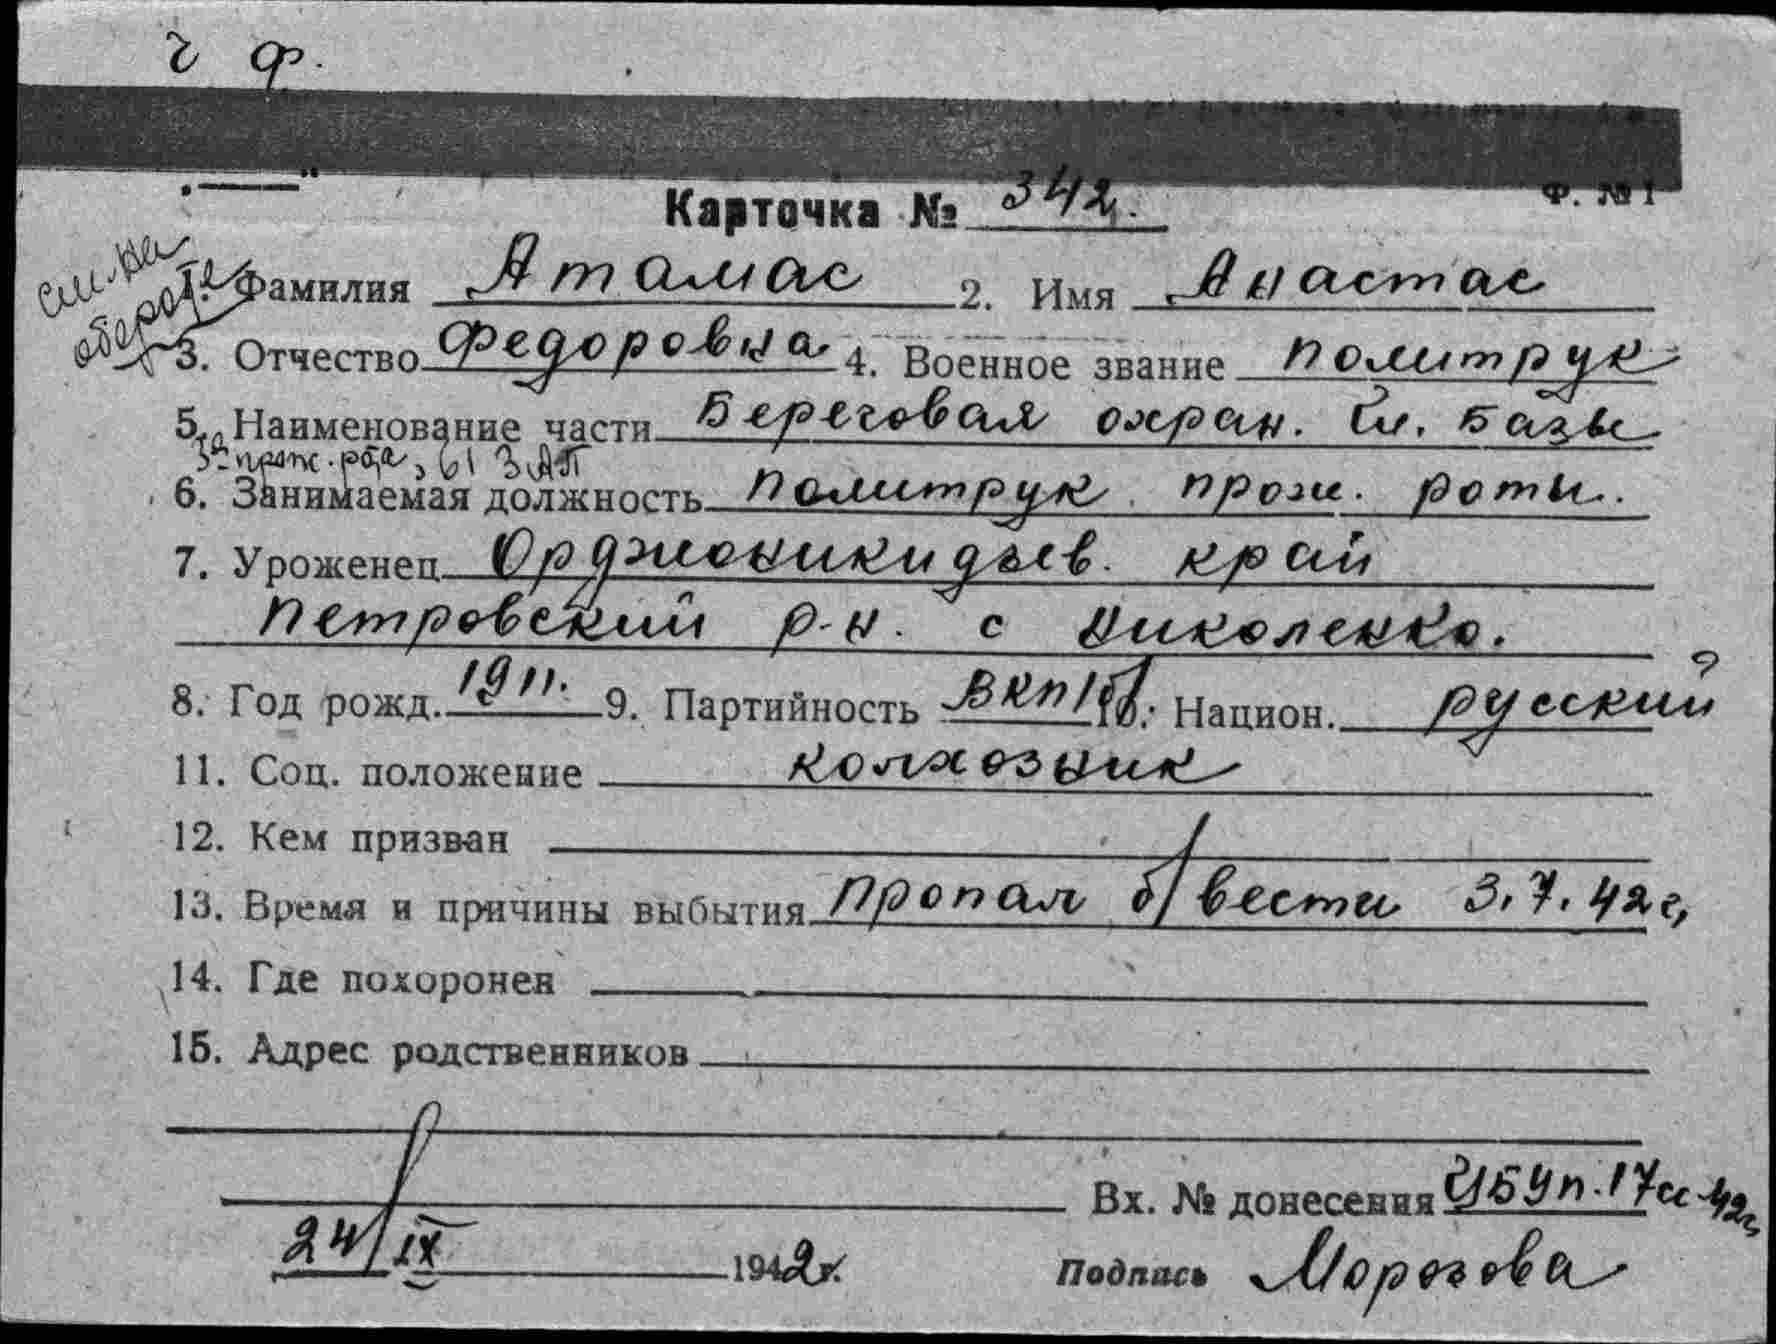 ч ф.
Ф. № 1
Карточка № 342.
см. на обороте
1. Фамилия Атамас 2. Имя Анастас
3. Отчество Федоровна 4. Военное звание политрук
5. Наименование части Береговая охран. Гл. Базы
3я прож. рота, 61 ЗАП
6. Занимаемая должность политрук прож. роты.
7. Уроженец Орджоникидзев. край
Петровский р-н. с Николенко.
8. Год рожд. 1911. 9. Партийность ВКП/б/ 10. Национ. русский ?
11. Соц. положение колхозник
12. Кем призван
13. Время и причины выбытия пропал б/вести 3.7.42г.
14. Где похоронен
15. Адрес родственников
Вх. № донесения 17сс-42г.
24/IX 1942г.
Подпись Морозова